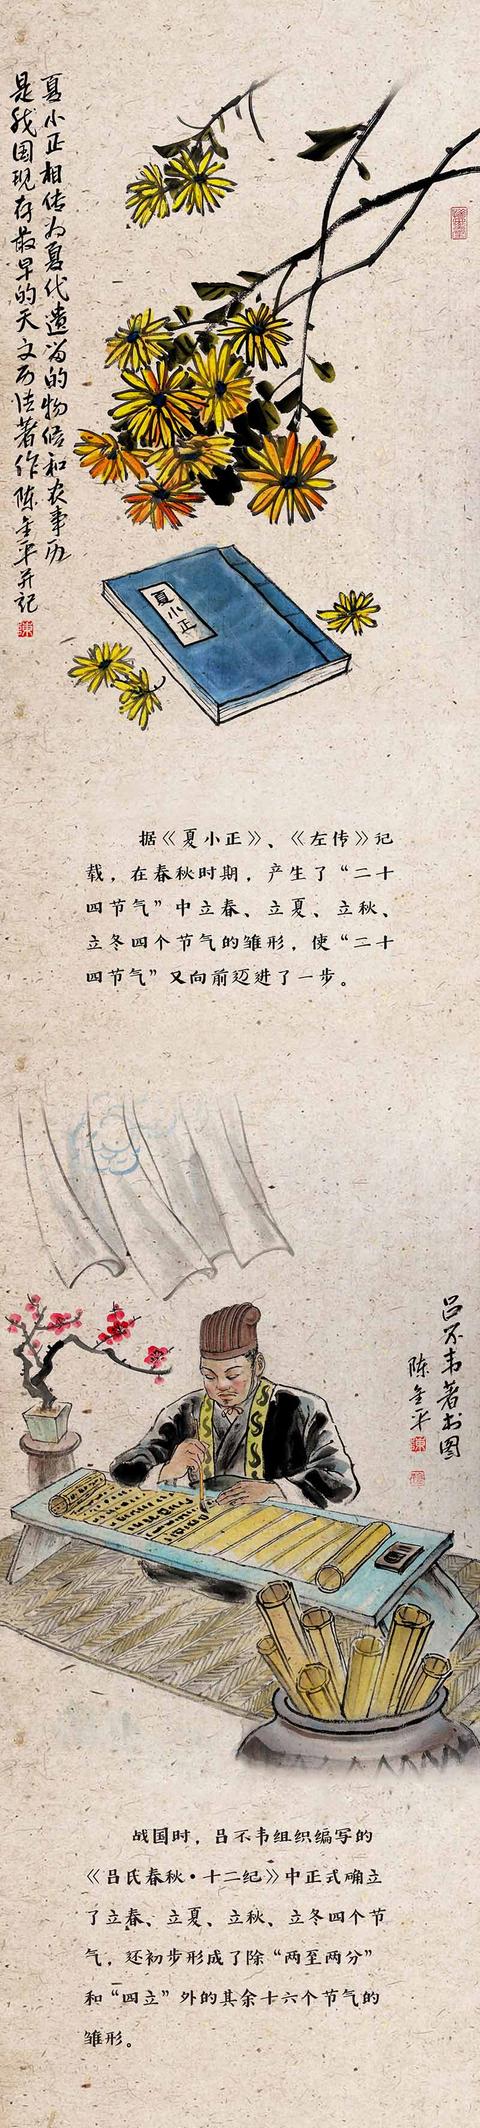 夏小正相传为夏代遗留的物候和农事历
是我国现存最早的天文历法著作陈金平并记
陈
夏小正
据《夏小正》、《左传》记
载，在春秋时期，产生了“二十
四节气”中立春、立夏、立秋、
立冬四个节气的雏形，使“二十
四节气”又向前迈进了一步。
吕不韦著书图
陈金平
陈
战国时，吕不韦组织编写的
《吕氏春秋·十二纪》中正式确立
了立春、立夏、立秋、立冬四个节
气，还初步形成了除“两至两分”
和“四立”外的其余十六个节气的
雏形。